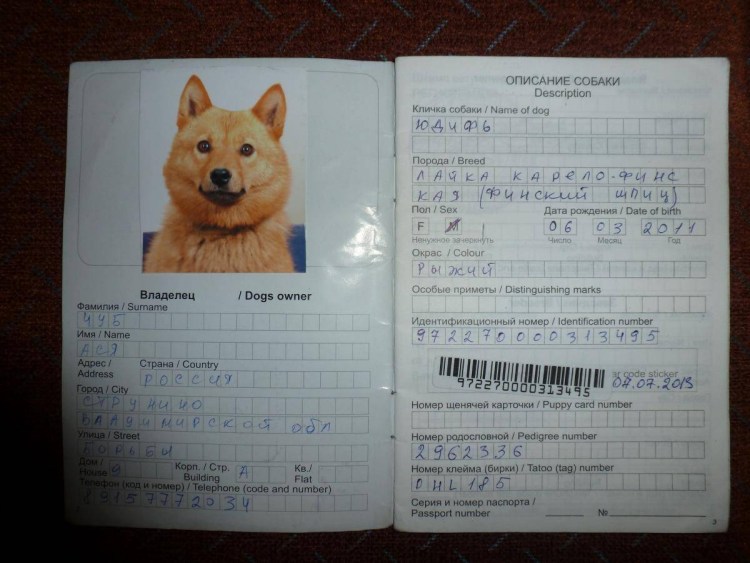 Владелец / Dogs owner
Фамилия / Surname
ЧУБ
Имя / Name
АСЯ
Адрес / Address
Страна / Country
РОССИЯ
Город / City
СТРУНИНО
ВЛАДИМИРСКОЙ ОБЛ
Улица / Street
БОРЬБЫ
Дом / House 9
Корп. / Стр. Building А
Кв./ Flat
Телефон (код и номер) / Telephone (code and number)
89157772034
ОПИСАНИЕ СОБАКИ
Description
Кличка собаки / Name of dog
ЮДИФЬ
Порода / Breed
ЛАЙКА КАРЕЛО-ФИНС
КАЯ (ФИНСКИЙ ШПИЦ)
Пол / Sex
Дата рождения / Date of birth
F M
06 03 2011
Ненужное зачеркнуть
Число Месяц Год
Окрас / Colour
РЫЖИЙ
Особые приметы / Distinguishing marks
Идентификационный номер / Identification number
972270000313495
972270000313495
ar code sticker
04.07.2013
Номер щенячей карточки / Puppy card number
Номер родословной / Pedigree number
2962336
Номер клейма (бирки) / Tatoo (tag) number
OHL 185
Серия и номер паспорта /
Passport number
№
3